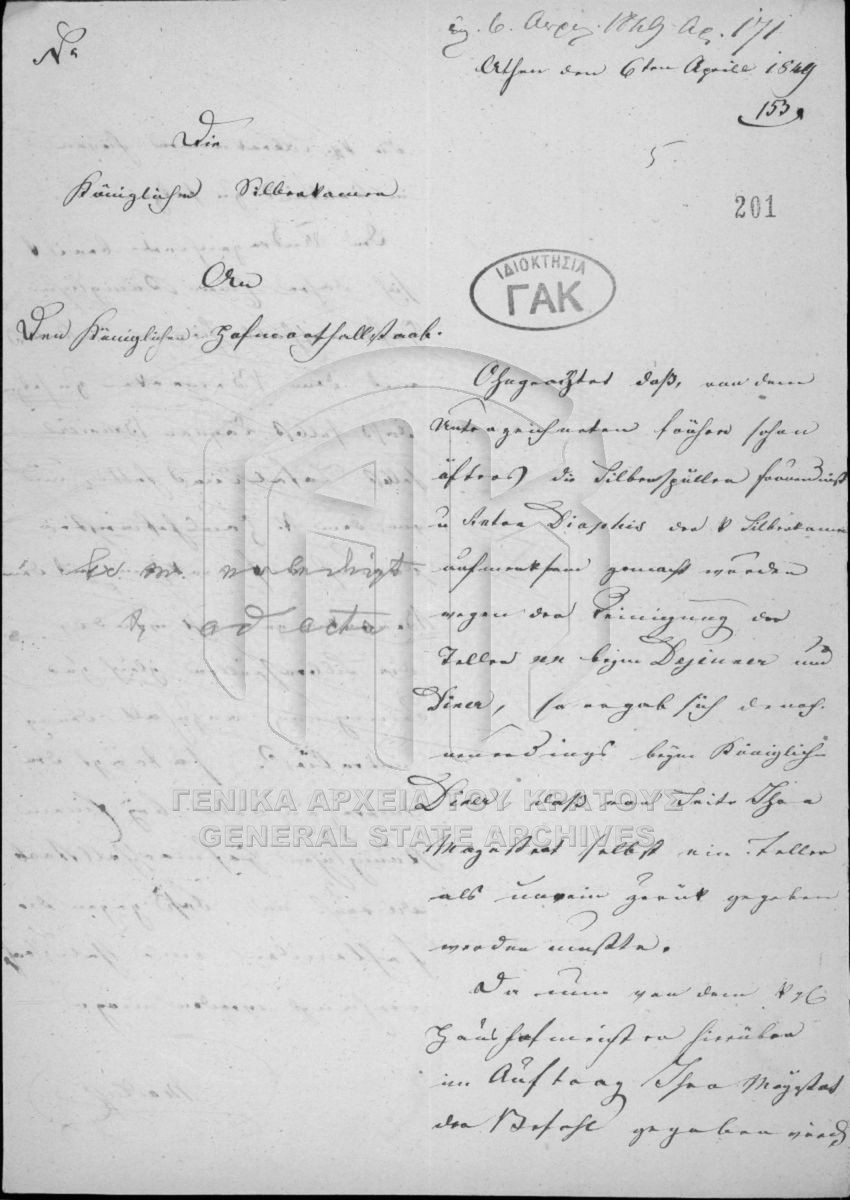 No
6. Απριλ. 1849 Αρ. 171
Athen den 6ten Aprill 1849
153
Die
5
Königliche Silberkamer
201
An
ΙΔΙΟΚΤΗΣΙΑ
ΓΑΚ
Den Königlichen Hofmarschallstaab.
Ohngeachtet daß, von dem
Unterzeichneten früher schon
öfters die Silberspüller
u Anton Diaphis der K Silberkamer
aufmerksam gemacht wurden
wegen der Reinigung der
Teller beym Dejeuner und
Diner, so ergab sich dennoch
neuerdings beym Königlichen
Diner, daß von Seite Ihrer
Magestaet selbst ein Teller
als unrein zurük gegeben
werden mußte.
ad acta
ΓΕΝΙΚΑ ΑΡΧΕΙΑ ΤΟΥ ΚΡΑΤΟΥΣ
GENERAL STATE ARCHIVES
Da nun von dem Kgl
Haushofmeister hierüber
im Auftrag Ihrer Majestaet
der Befehl gegeben wird